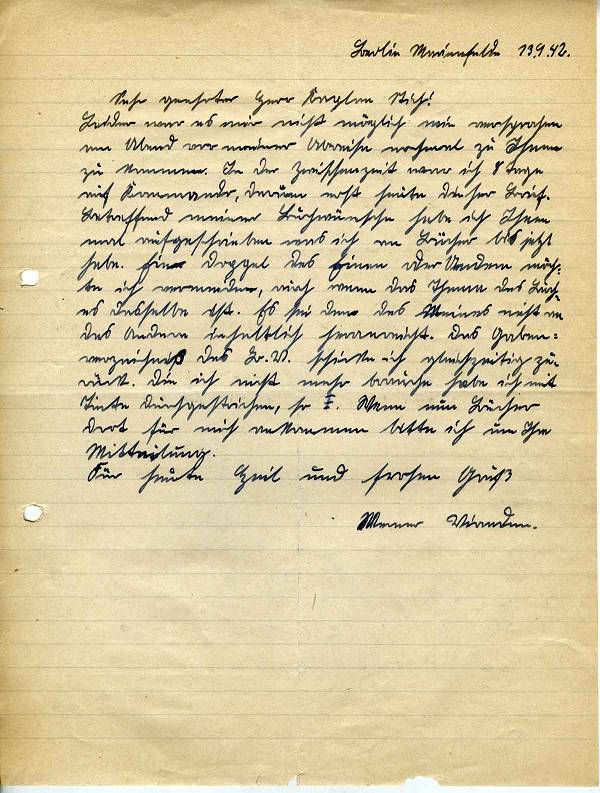 Berlin Marienfelde 13.9.42.
Sehr geehrter Herr Kaplan
Leider war es mir nicht möglich wie versprochen
am Abend vor meiner Abreise nochmal zu Ihnen
zu kommen. In der Zwischenzeit war ich 8 Tage
auf Kommando, darum erst heute dieser Brief.
Betreffend meiner Buchwünsche habe ich Ihnen
mal aufgeschrieben was ich an Bücher bis jetzt
habe. Ein Doppel des Einen oder Andern möch-
te ich vermeiden, auch wenn das Thema des Buch-
es dasselbe ist. Es sei denn das Meines nicht an
das Andere inhaltlich heranreicht. Das Gaben-
verzeichniß des Br.V. schicke ich gleichzeitig zu-
rück. Die ich nicht mehr brauche habe ich mit
Tinte durchgestrichen, so I. Wenn nun Bücher
dort für mich ankommen bitte ich um Ihre
Mitteilung.
Für heute Heil und frohen Gruß
Werner